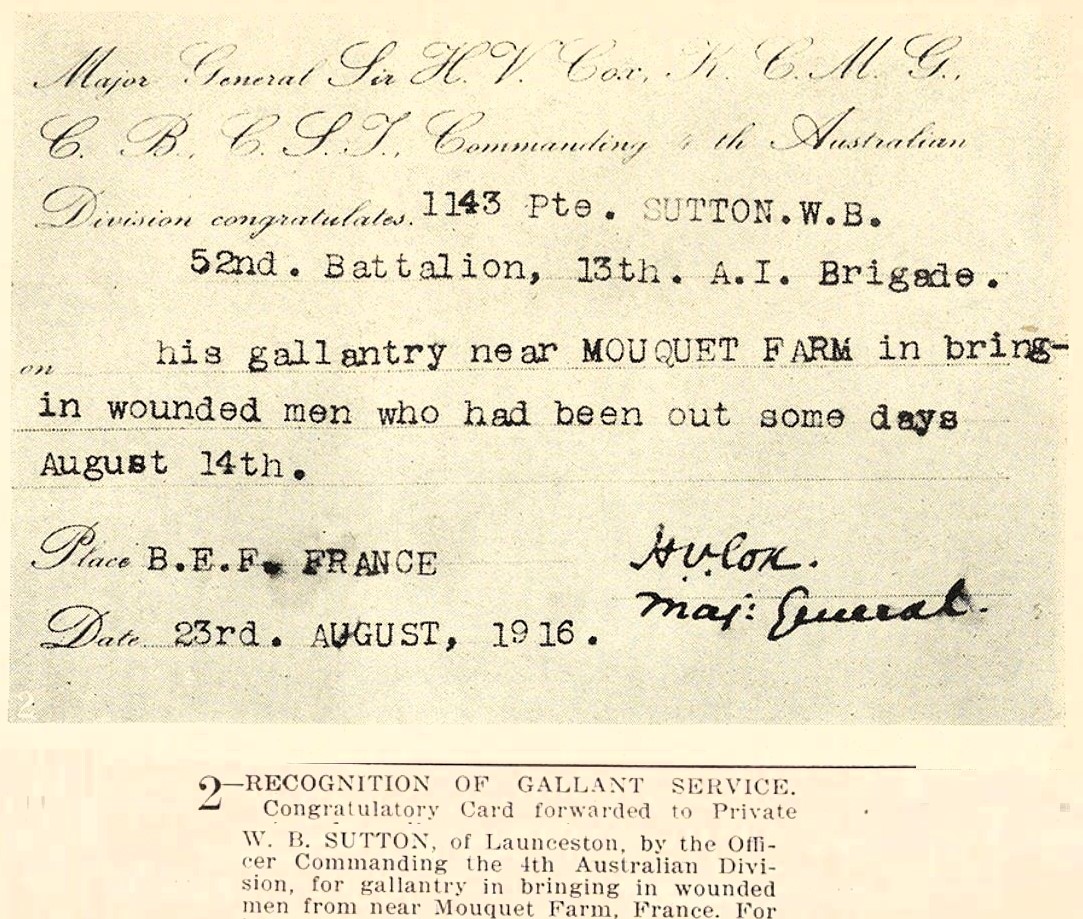 Major General Sir H. V. Cox, K. C. M. G.,
C. B., C. S. I., Commanding 4 th Australian
Division congratulates. 1143 Pte. SUTTON.W.B.
52nd. Battalion, 13th. A.I. Brigade.
on his gallantry near MOUQUET FARM in bring-
in wounded men who had been out some days
August 14th.
Place B.E.F. FRANCE
H.V.Cox.
Maj: General.
Date 23rd. AUGUST, 1916.
2
2—RECOGNITION OF GALLANT SERVICE.
Congratulatory Card forwarded to Private
W. B. SUTTON, of Launceston, by the Offi-
cer Commanding the 4th Australian Divi-
sion, for gallantry in bringing in wounded
men from near Mouquet Farm, France. For